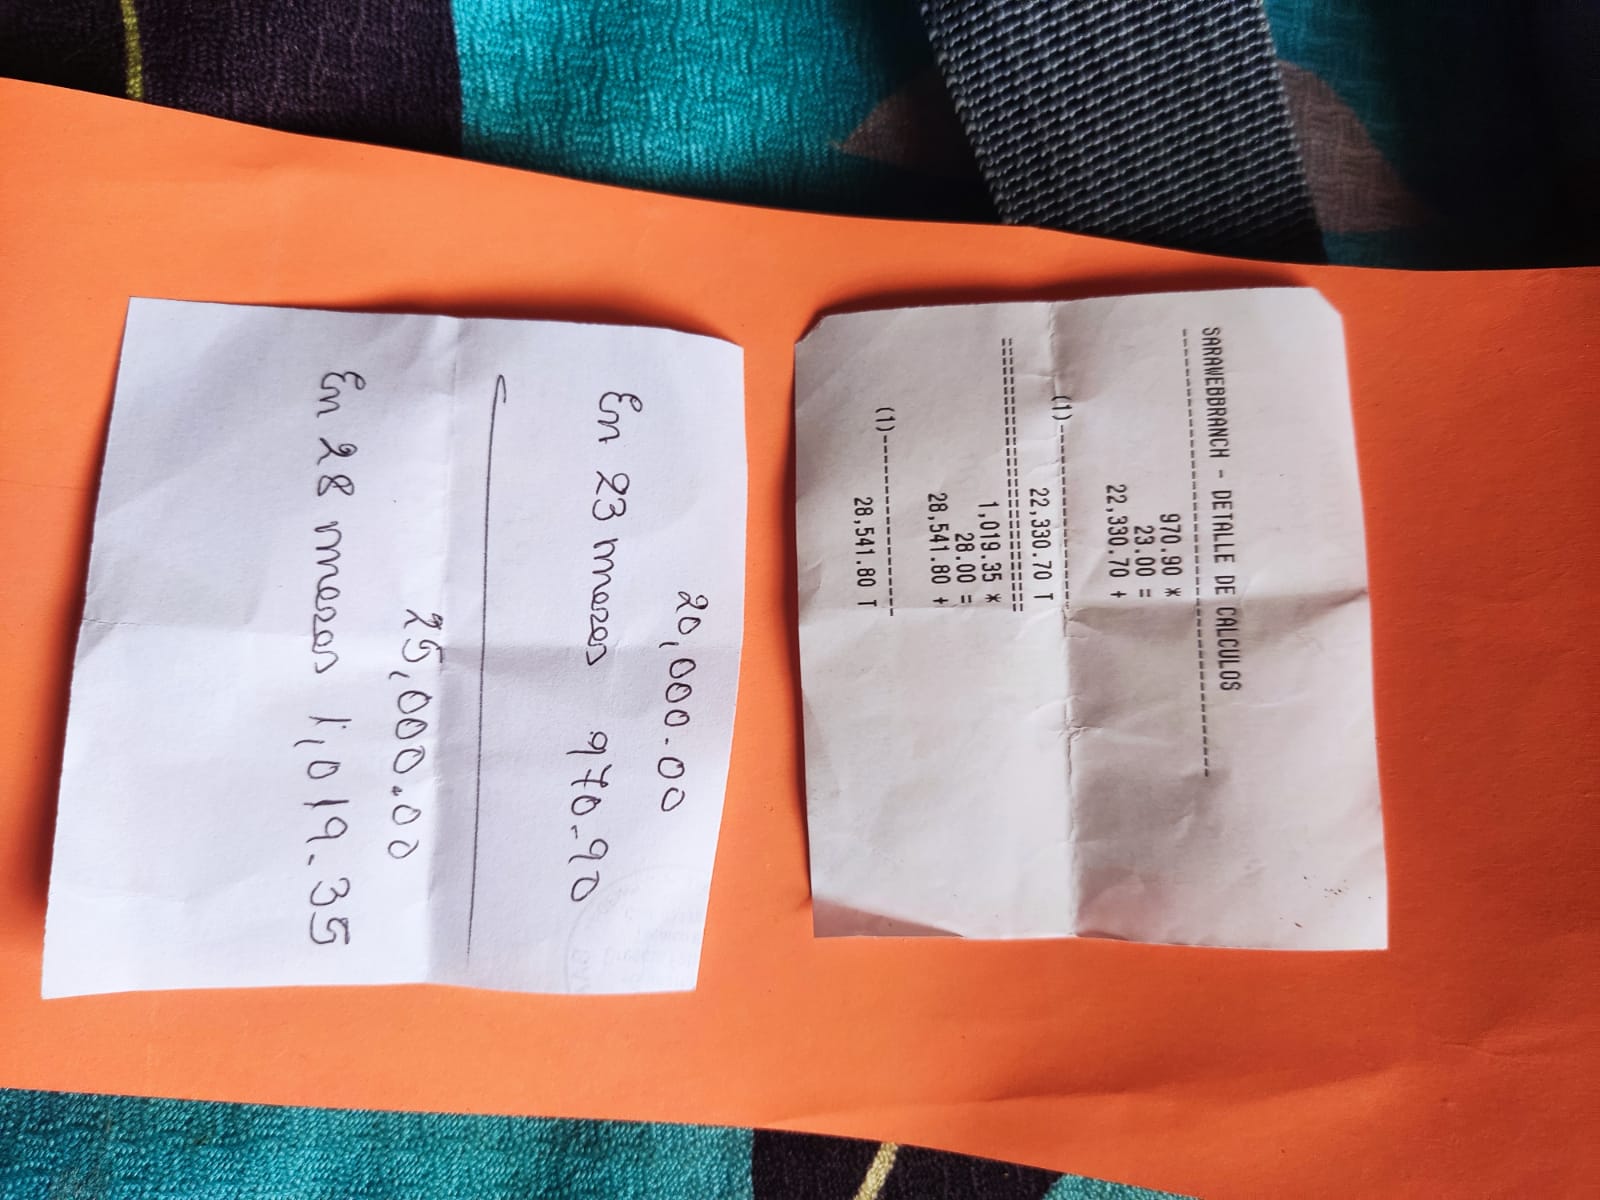 SARAWEBBRANCH - DETALLE DE CALCULOS
---------------------------------------------
970.90 *
23.00 =
22,330.70 +
(1)----------------------
22,330.70 T
==============================
1,019.35 *
28.00 =
28,541.80 +
(1)----------------------
28,541.80 T
20,000.00
En 23 meses 970.90
25,000.00
En 28 meses 1,019.35